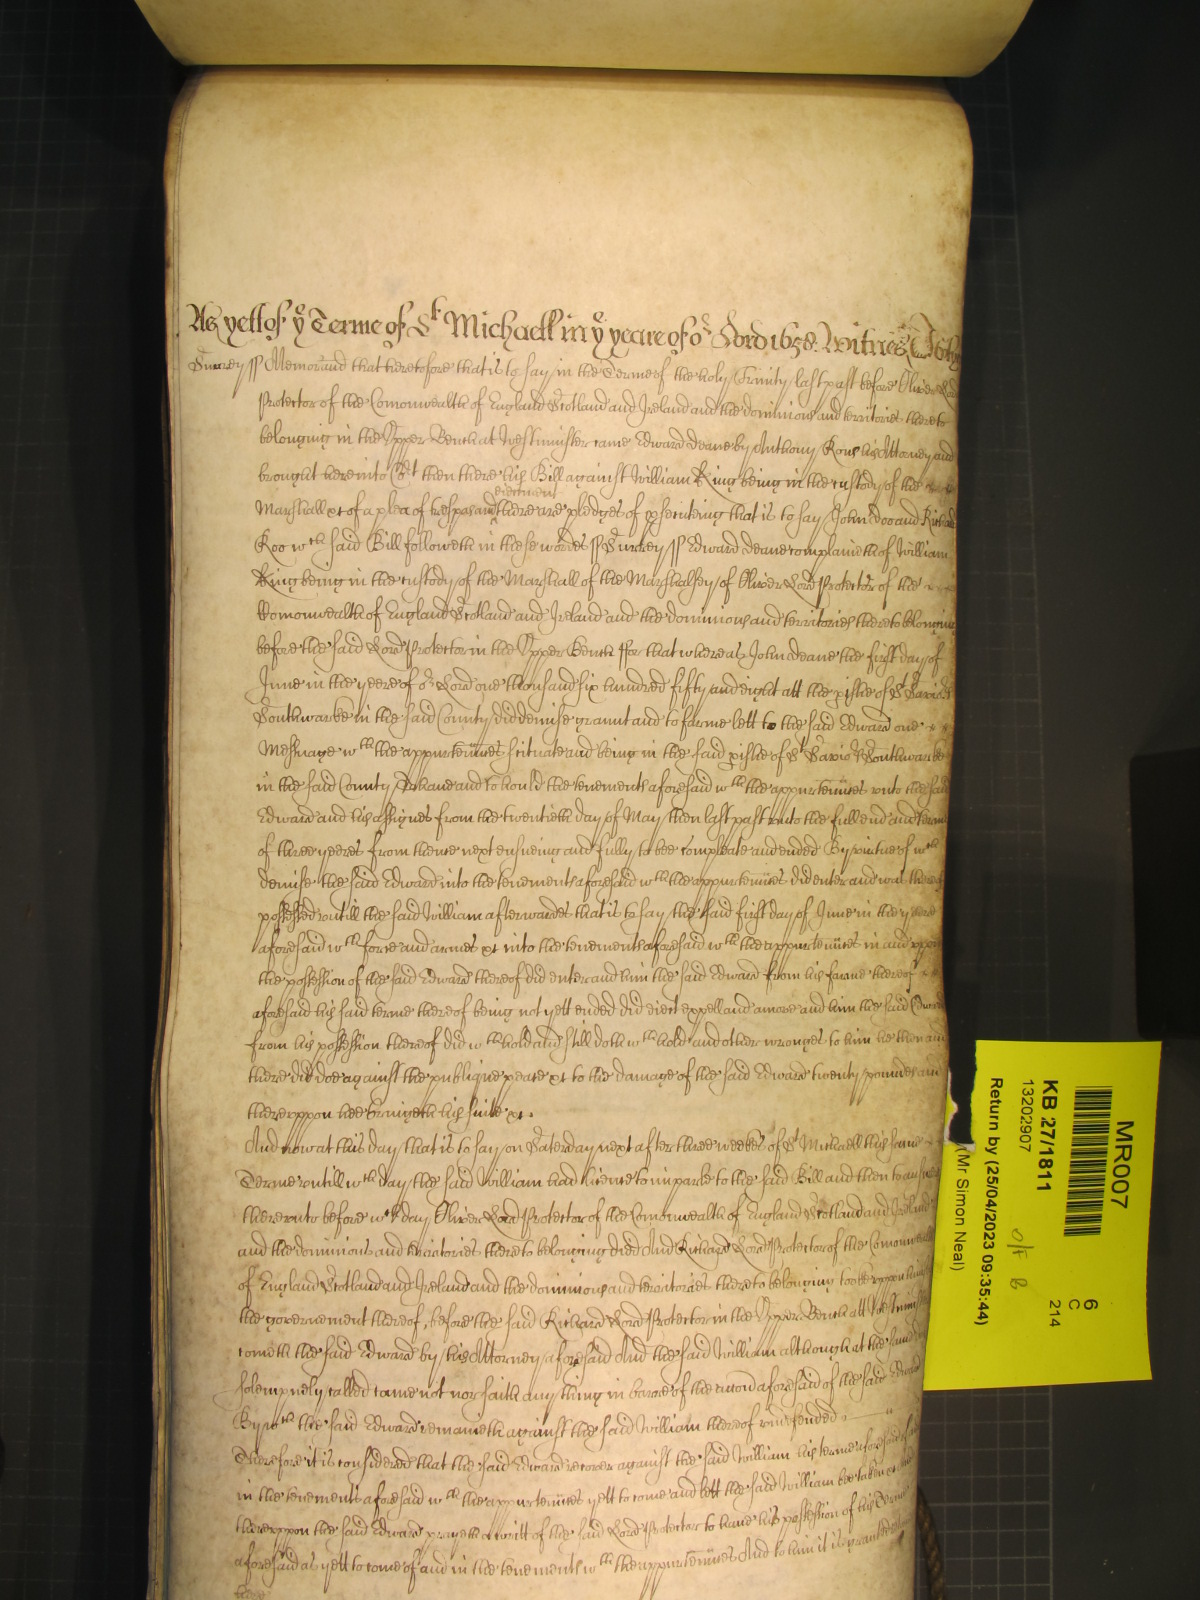 As yett of ye Terme of St Michaell in ye yeare of or Lord 1658. Witnes
Surrey ss Memorand that heretofore that is to say in the Terme of the holy Trinity last past before Oliver Lord
Protector of the Comonwealth of England Scotland and Ireland and the dominions and territories thereto
belonging in the Upper Bench at Westminster came Edward Deane by Anthony Rous his Attorney and
brought here into Court then there his Bill against William King being in the custody of the
eiectment
Marshall &c of a plea of trespas and there are pledges of prosecuting that is to say John Doo and Richard
Roo wch said Bill followeth in these wordes ss Surrey ss Edward Deane complaineth of William
King being in the custody of the Marshall of the Marshalsey of Oliver Lord Protector of the
Comonwealth of England Scotland and Ireland and the dominions and territories thereto belonging
before the said Lord Protector in the Upper Bench ffor that whereas John Deane the first day of
June in the yeere of or Lord one thousand six hundred fifty and eight att the pishe of St Saviors
Southwarke in the said County did demise graunt and to farme lett to the said Edward one
Messuage wth the appurtennces scituate and being in the said pishe of St Savior Southwarke
in the said County To have and to hould the tenements aforesaid wth the appurtennces unto the said
Edward and his assignes from the twentieth day of May then last past unto the full end and terme
of three yeeres from thence next ensueing and fully to bee compleate and ended By virtue of wch
demise the said Edward into the tenements aforesaid wth the appurtennces did enter and was thereof
possessed untill the said William afterwardes that is to say the said first day of June in the yeere
aforesaid wth force and armes &c into the tenements aforesaid wth the appurtennces in and uppon
the possession of the said Edward thereof did enter and him the said Edward from his farme thereof
aforesaid his said terme thereof being not yett ended did eiect expell and amove and him the said Edward
from his possession thereof did wthhold and still doth wthhold and other wronges to him he then and
there did doe against the publique peace &c to the damage of the said Edward twenty poundes and
thereuppon hee bringeth his suite &c.
And now at this day that is to say on Saterday next after three weekes of St Michaell this same
Terme untill wch day the said William had licence to imparle to the said Bill and then to answere
thereunto before wch day Oliver Lord Protector of the Comonwealth of England Scotland and Ireland
and the dominions and territories thereto belonging died And Richard Lord Protector of the Comonwealth
of England Scotland and Ireland and the dominions and territories thereto belonging tooke uppon him
the governement thereof, before the said Richard Lord Protector in the Upper Bench att Westminster
cometh the said Edward by his Attorney aforesaid And the said William although at the same day
solempnely called came not nor saith any thing in barre of the accon aforesaid of the said Edward
By wch the said Edward remaineth against the said William thereof undefended
Therefore it is considered that the said Edward recover against the said William his terme aforesaid
in the tenements aforesaid wth the appurtennces yett to come and lett the said William bee taken
thereuppon the said Edward prayeth a writt of the said Lord Protector to have his possession of his Terme
aforesaid as yett to come of and in the tenements wth the appurtennces And to him it is graunted
MR007
6
C
214
KB 27/1811
13202907
Return by (25/04/2023 09:35:44)
(Mr Simon Neal)